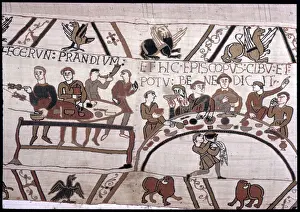 FECERVN: PRANDIVM:
ET HIC EPISCOPVS: CIBV: ET
POTV: BENEDICIT: